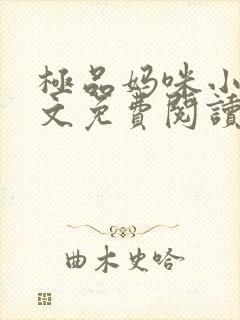 極品妈咪小
文免費閱讀
曲木史哈